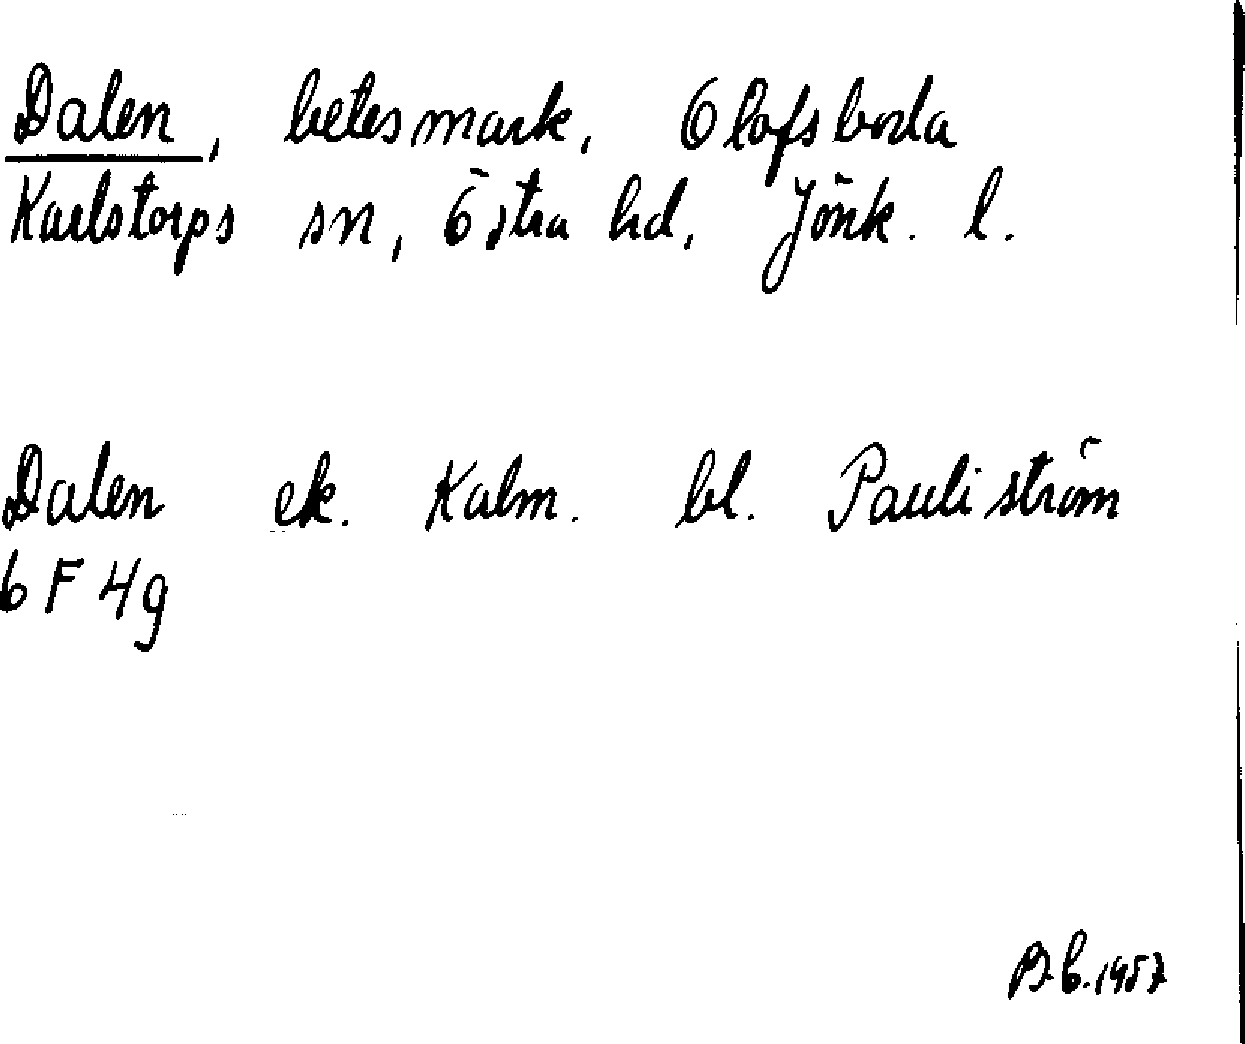 Dalen, betesmark, Olofsboda
Karlstorps sn, Östra hd, Jönk. l.
Dalen ek. Kalm. bl. Pauliström
6 F 4g
B.b. 1957